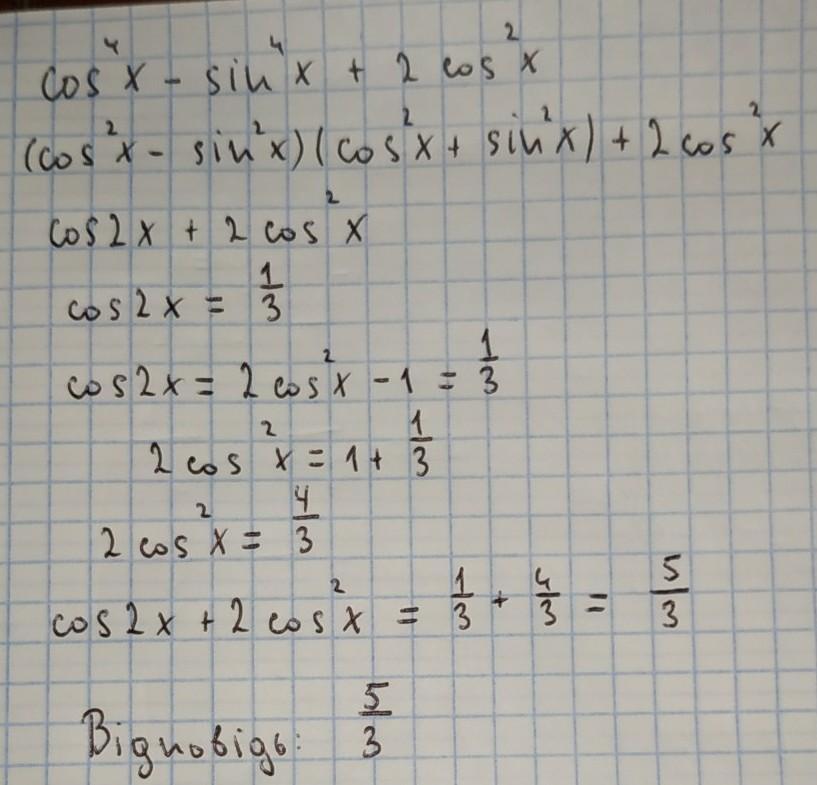 cos⁴x - sin⁴x + 2 cos²x
(cos²x - sin²x)(cos²x + sin²x) + 2 cos²x
cos2x + 2 cos²x
cos2x = 1/3
cos2x = 2 cos²x - 1 = 1/3
2 cos²x = 1 + 1/3
2 cos²x = 4/3
cos2x + 2 cos²x = 1/3 + 4/3 = 5/3
Відповідь: 5/3